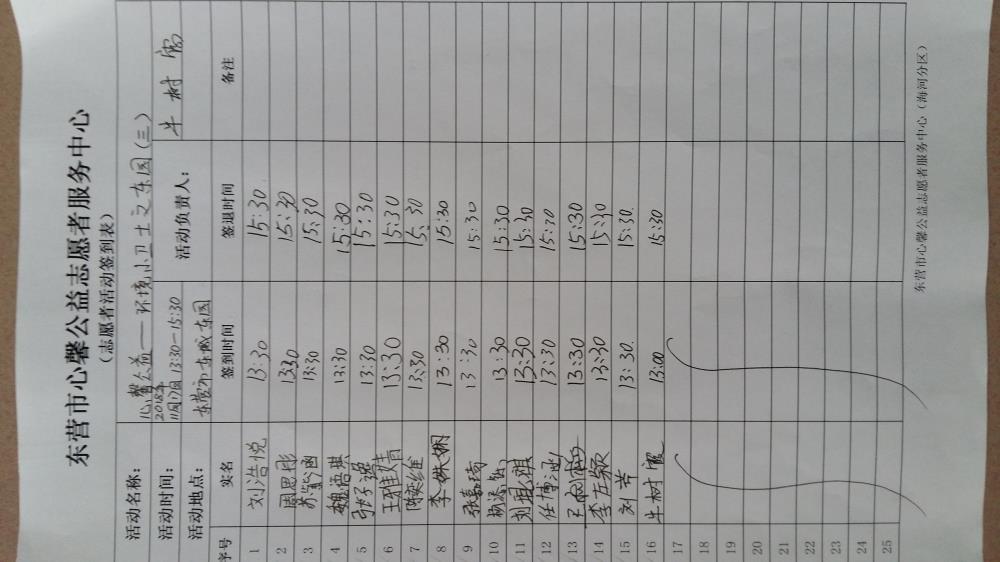 东营市心馨公益志愿者服务中心
（志愿者活动签到表）
活动名称： 心馨公益——环境小卫士之东园（三）
活动时间： 2018年11月17日 13:30—15:30 活动负责人： 牛树霞
活动地点： 东营市东城东园
序号 实名 签到时间 签退时间 备注
1 刘浩悦 13:30 15:30
2 周思彤 13:30 15:30
3 苏紫涵 13:30 15:30
4 魏语琪 13:30 15:30
5 13:30 15:30
6 王雅婧 13:30 15:30
7 陈奕维 13:30 15:30
8 李姝娴 13:30 15:30
9 张嘉琦 13:30 15:30
10 13:30 15:30
11 刘昆祺 13:30 15:30
12 任博渊 13:30 15:30
13 13:30 15:30
14 李左颖 13:30 15:30
15 刘芳 13:30. 15:30.
16 牛树霞 13:00 15:30
17
18
19
20
21
22
23
24
25
东营市心馨公益志愿者服务中心（海河分区）